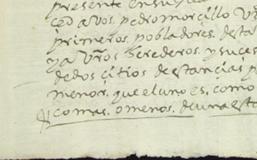 presente en su
ced a vos pedro morcillo v
primeros, pobladores. desta
y a vros herederos, y suces
de dos citios de estancias p
menor. que el uno es, como
como as. o menos. de una esta